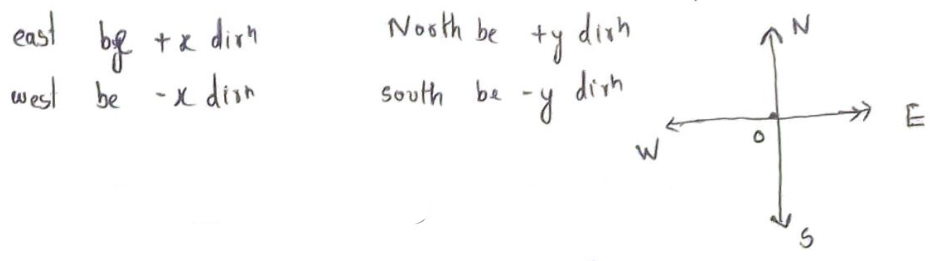 east be +x dirn
west be -x dirn
North be +y dirn
south be -y dirn
N
E
O
W
S